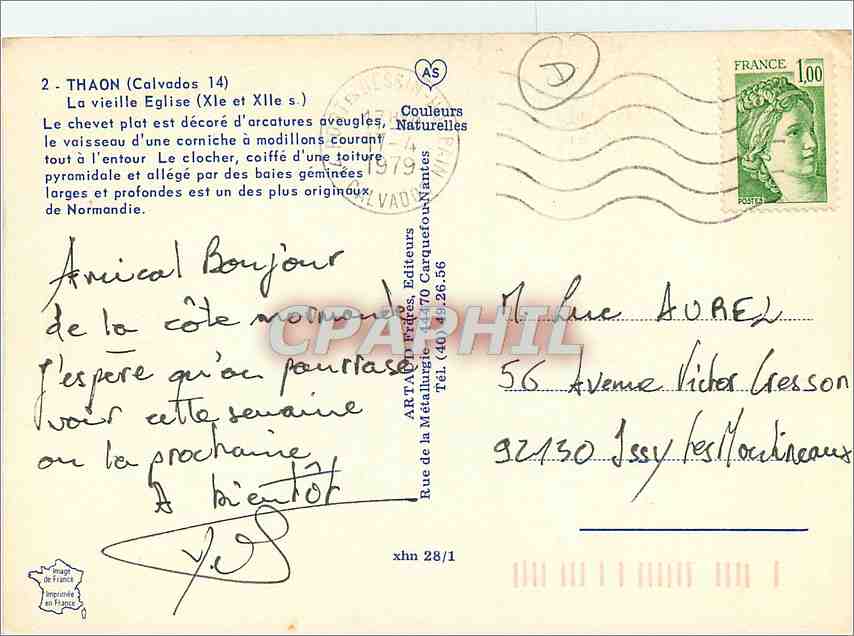 2 - THAON (Calvados 14)
La vieille Eglise (XIe et XIIe s.)
Le chevet plat est décoré d'arcatures aveugles,
le vaisseau d'une corniche à modillons courant
tout à l'entour Le clocher, coiffé d'une toiture
pyramidale et allégé par des baies géminées
larges et profondes est un des plus originaux
de Normandie.
AS
Couleurs
Naturelles
17-4
1979
CALVADOS
D
FRANCE 1,00
POSTES
Amical Bonjour
de la côte normande
j'espère qu'on pourra se
voir cette semaine
ou la prochaine
A bientôt
ARTAUD Frères, Editeurs
Rue de la Métallurgie - 44470 Carquefou-Nantes
Tél. (40) 49.26.56
CPAPHIL
M. Luc AUREL
56 Avenue Victor Cresson
92130 Issy les Moulineaux
xhn 28/1
Image
de France
Imprimée
en France